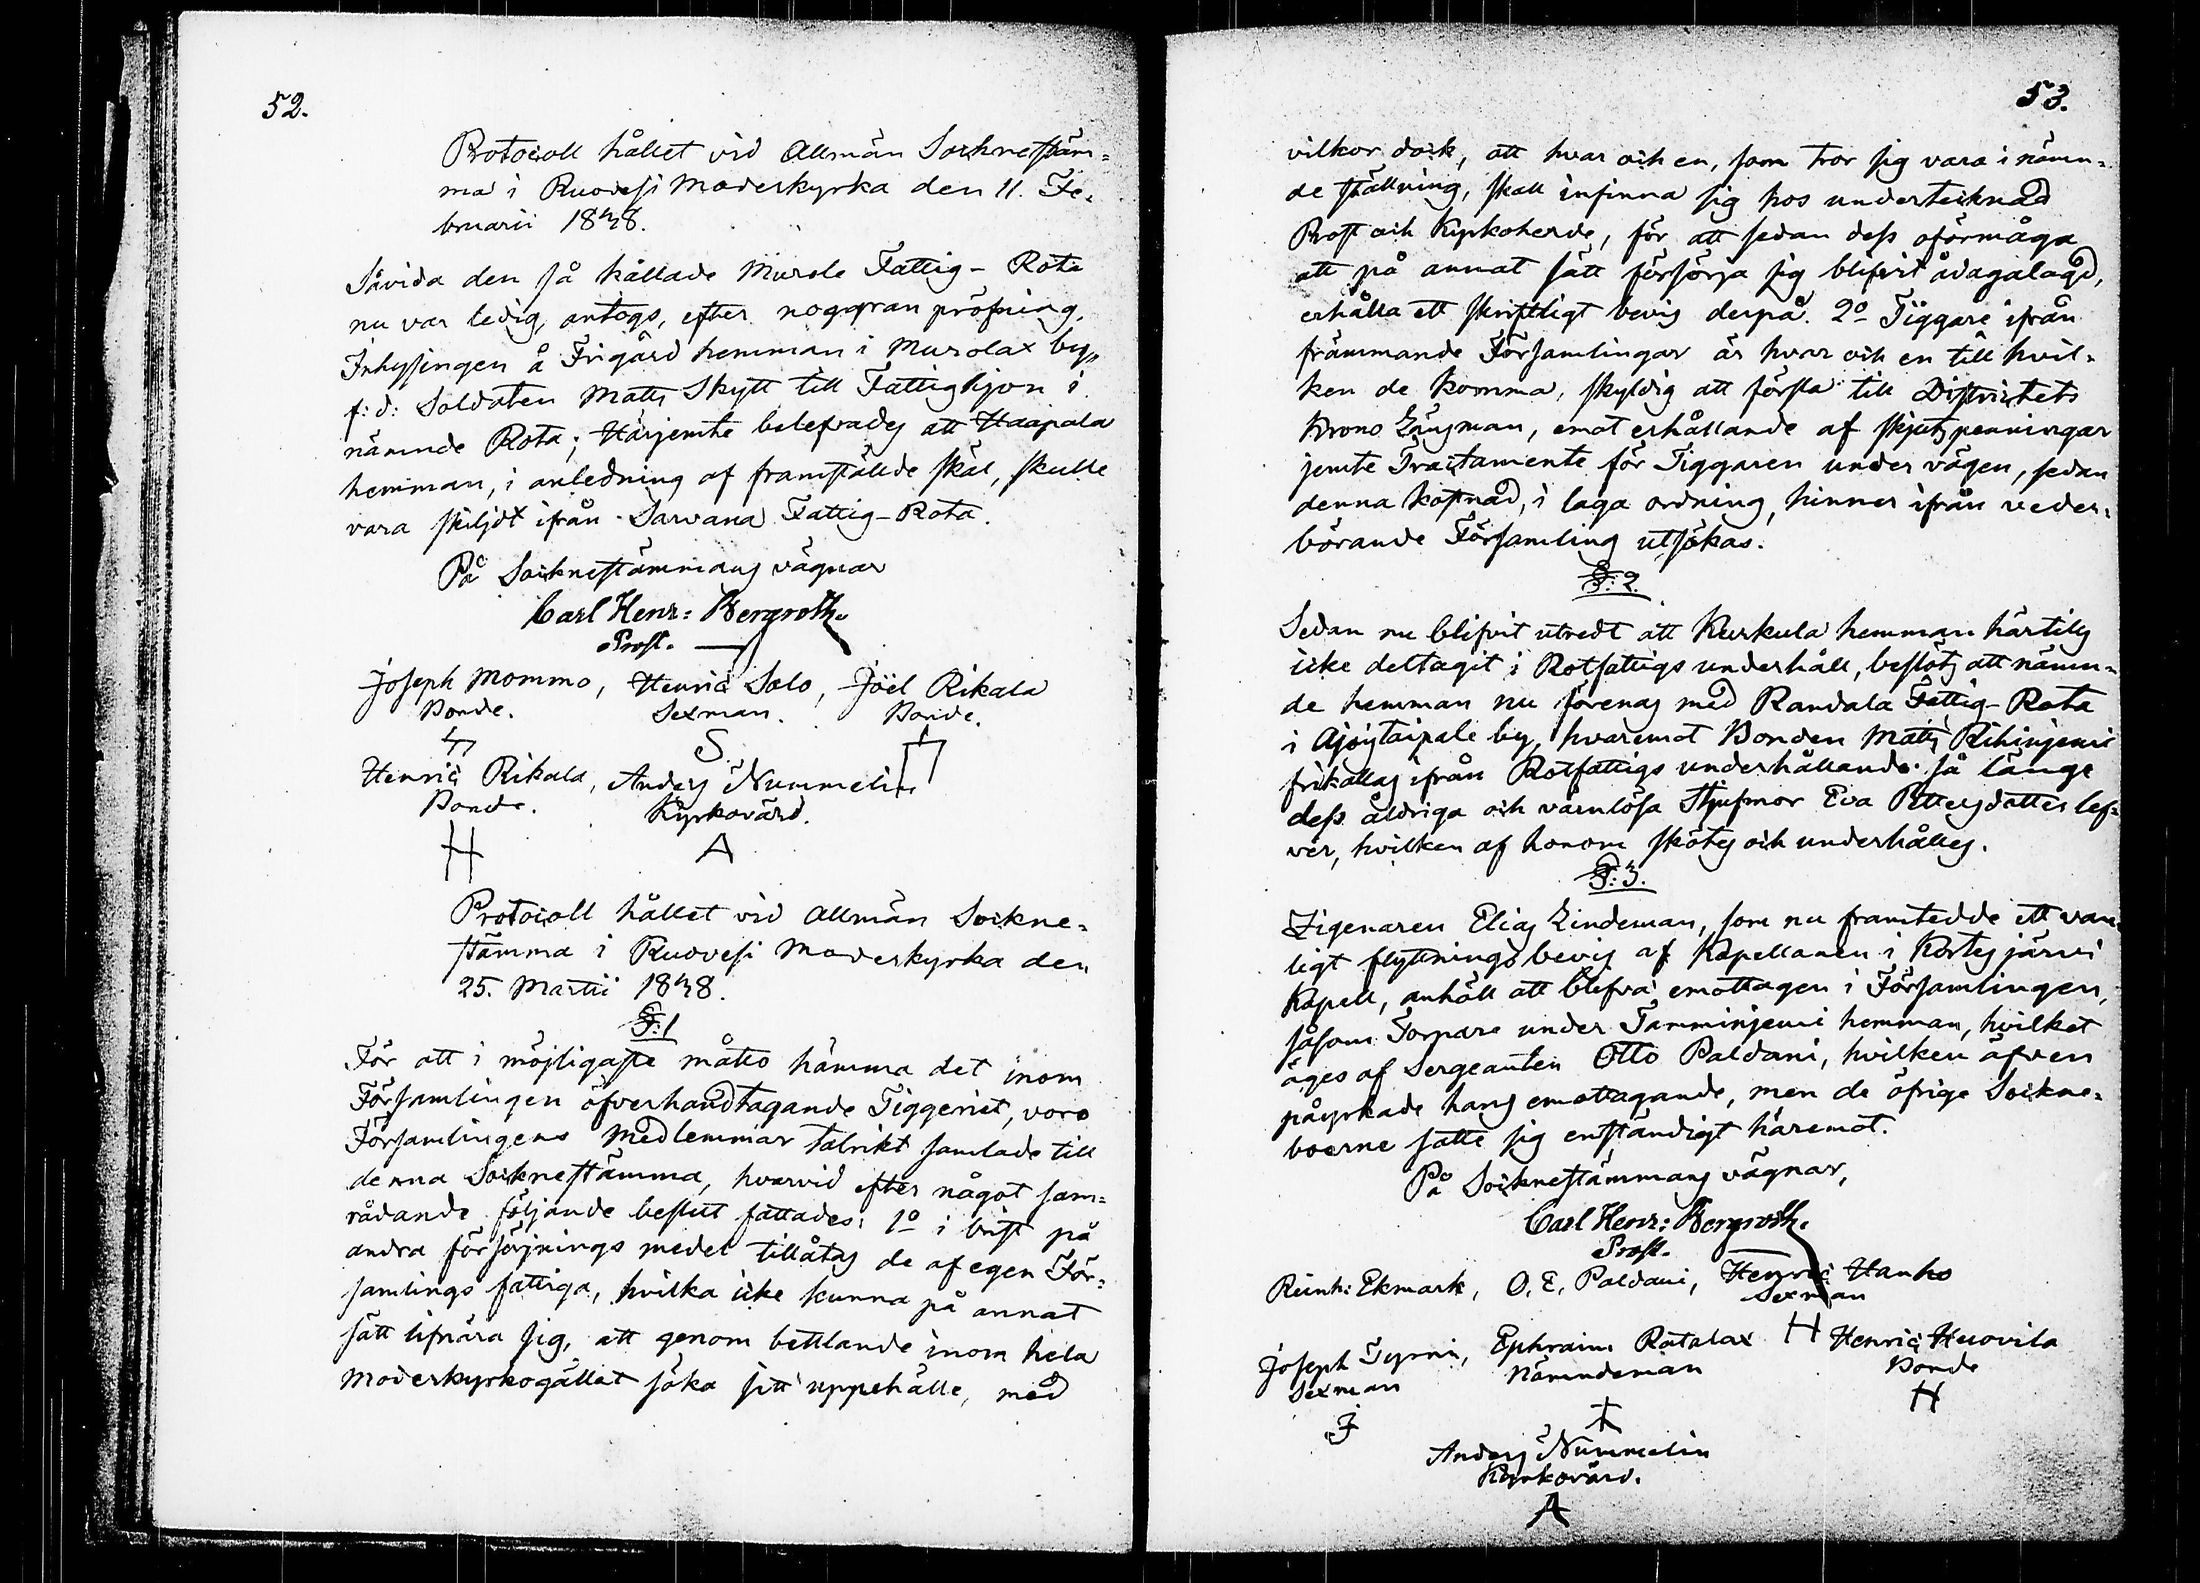 52.
Protocoll hållet vid Allmän Socknestäm=
ma i Ruovesi Moderkyrka den 11. Fe=
bruarii 1848.
Såvida den så kållade Murole Fattig-Rota
nu var ledig, antogs, efter noggran pröfning,
Inhysingen å Frigård hemman i Murolax by,
f:d: Soldaten Matts Skytt till Fattighjon i
nämnde Rota; Härjemte belefvades att Haapala
hemman, i anledning af framställde skäl, skulle
vara skiljdt ifrån Sarvana Fattig-Rota.
På Socknestämmans vägnar
Carl Henr: Bergroth.
Prost.
Joseph Mommo, Henric Salo, Joël Rikala
Bonde. Sexman. Bonde.
Henric Rikala, Anders Nummelin
Bonde. Kyrkovärd.
H A
Protocoll hållet vid Allmän Sockne=
stämma i Ruovesi Moderkyrka den
25. Martii 1848.
§:1
För att i möjligaste måtto hämma det inom
Församlingen öfverhandtagande Tiggeriet, voro
Församlingens Medlemmar talrikt samlade till
denna Socknestämma, hvarvid efter något sam=
rådande följande beslut fattades: 1o i brist på
andra försörjnings medel tillåtas de af egen För=
samlings fattiga, hvilka icke kunna på annat
sätt lifnära sig, att genom bettlande inom hela
Moderkyrkogället söka sitt uppehälle, med
53.
vilkor dock, att hvar och en, som tror sig vara i nämn=
de ställning, skall infinna sig hos undertecknad
Prost och Kyrkoherde, för att sedan dess oförmåga
att på annat sätt försörja sig blifvit ådagalagd,
erhålla ett skriftligt bevis derpå. 2o Tiggare ifrån
främmande Församlingar är hvar och en till hvil=
ken de komma, skyldig att forsla till Districtets
Krono Länsman, emot erhållande af skjutspenningar
jemte Tractamente för Tiggaren under vägen, sedan
denna kostnad, i laga ordning, hinner ifrån veder=
börande Församling utsökas.
§:2.
Sedan nu blifvit utredt att Kurkula hemman härtils
icke deltagit i Rotfattigs underhåll, beslöts att nämn=
de hemman nu förenas med Randala Fattig-Rota
i Ajostaipale by, hvaremot Bonden Matts Rihinjemi
frikallas ifrån Rotfattigs underhållande så länge
dess åldriga och värnlösa Stjufmor Eva Pettersdotter lef=
ver, hvilken af honom skötes och underhålles.
§:3.
Zigenaren Elias Lindeman, som nu framtedde ett van=
ligt flyttningsbevis af Kapellanen i Kortesjärvi
Kapell, anhöll att blifva emottagen i Församlingen,
såsom Torpare under Tamminjemi hemman, hvilket
äges af Sergeanten Otto Paldani, hvilken äfven
påyrkade hans emottagande, men de öfrige Sockne=
boerne satte sig enständigt häremot.
På Socknestämmans vägnar,
Carl Henr: Bergroth.
Prost.
Reinh: Ekmark, O. E. Paldani, Henric Hanho
Sexman
H
Joseph Tyrni, Ephraim Ratalax Henric Huovila
Sexman Nämndeman Bonde
J H
Anders Nummelin
Kyrkovärd.
A